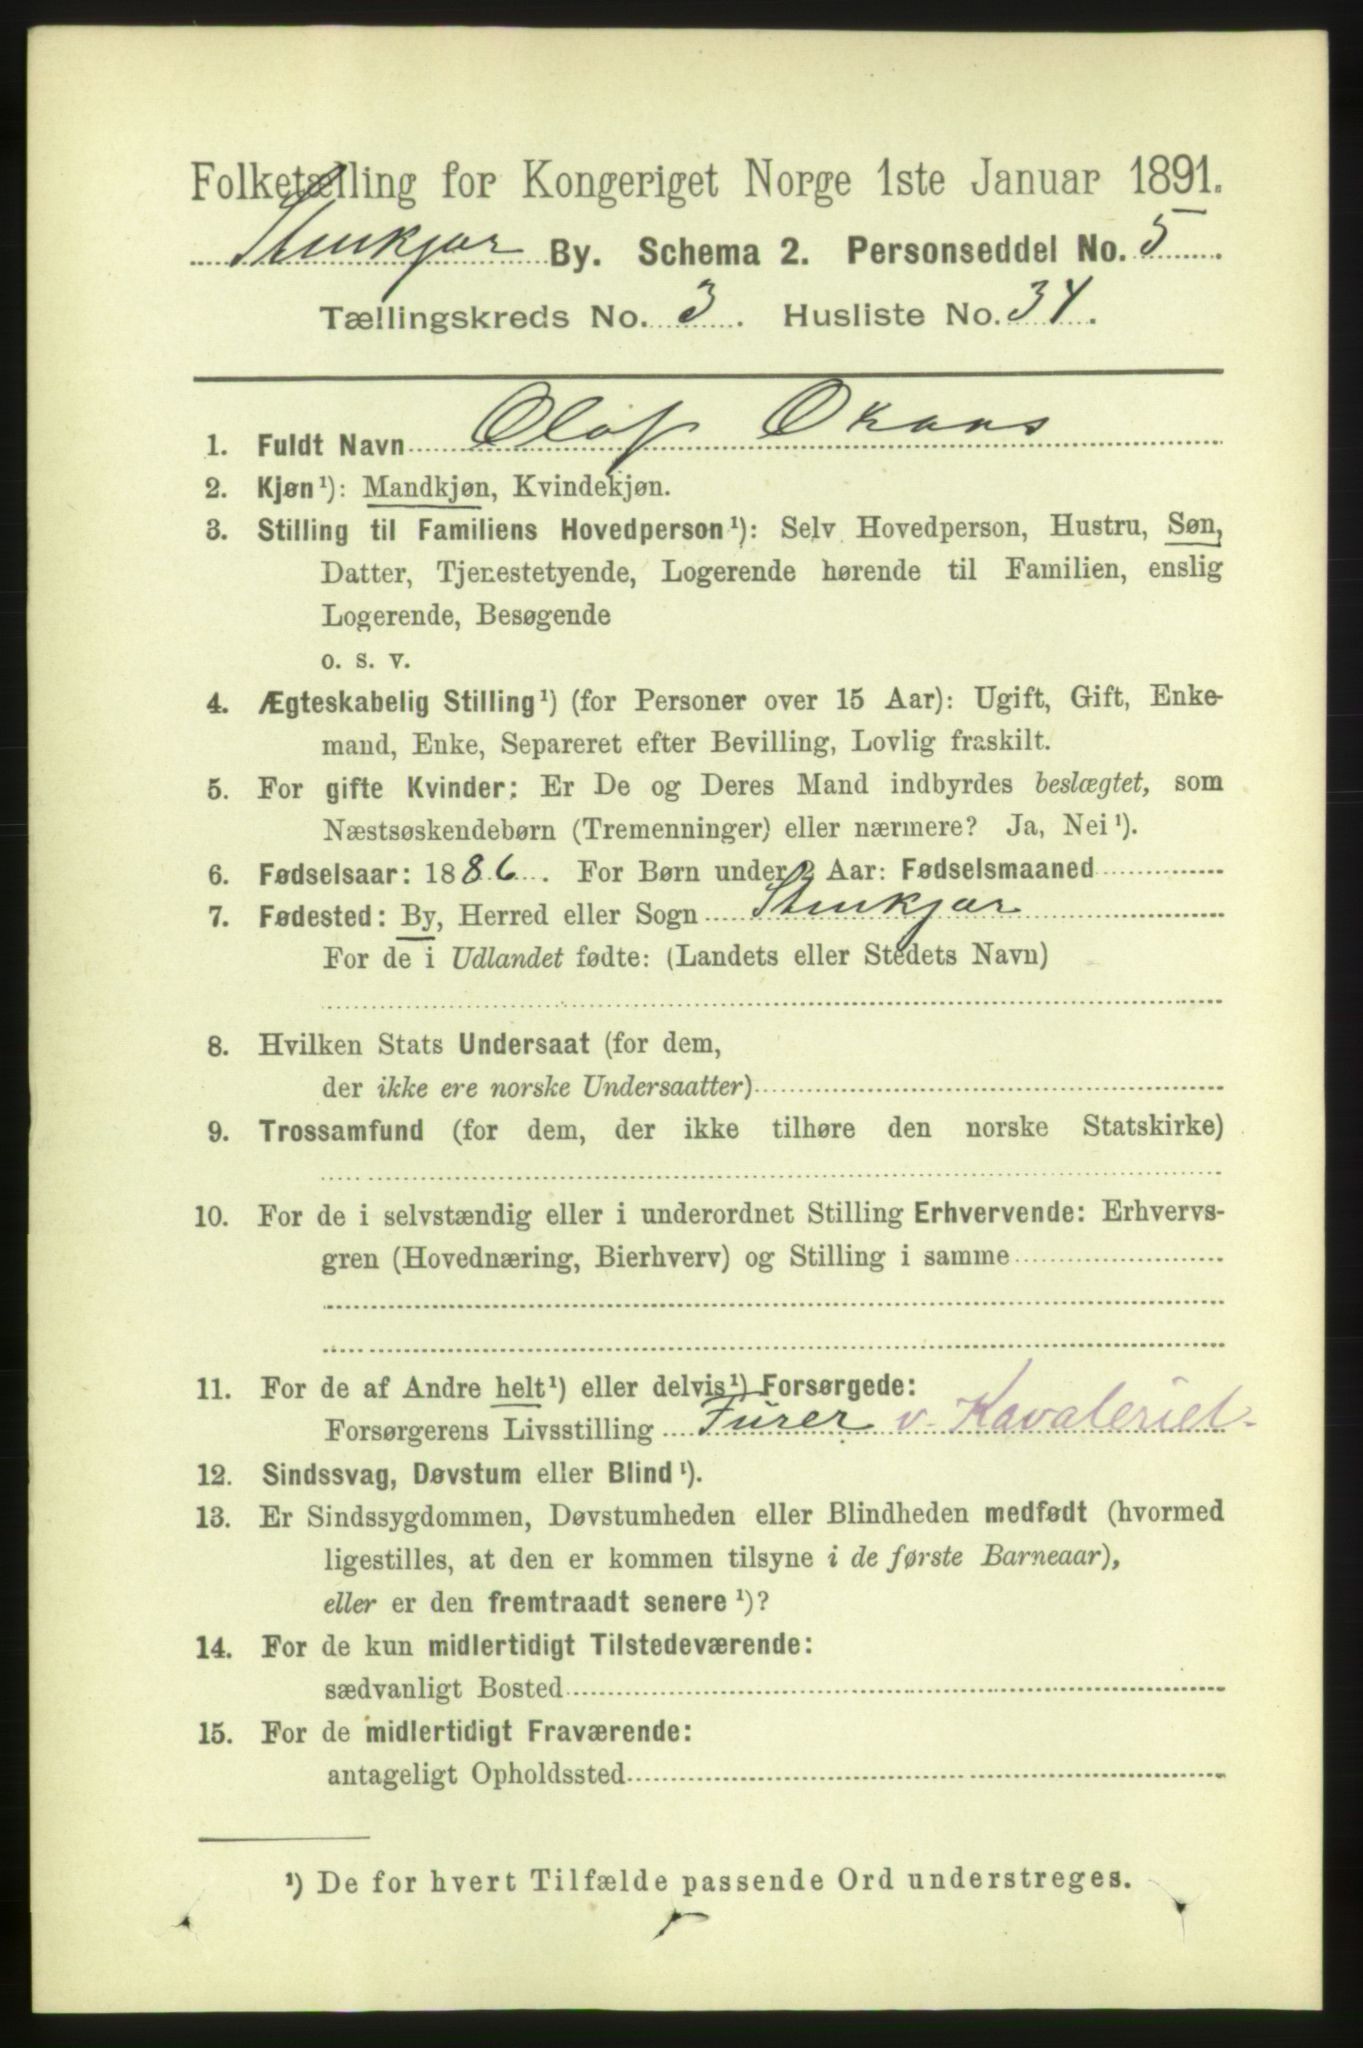 Folketælling for Kongeriget Norge 1ste Januar 1891.
Stenkjær By. Schema 2. Personseddel No. 5
Tællingskreds No. 3. Husliste No. 34.
1. Fuldt Navn Olaf
2. Kjøn¹): Mandkjøn, Kvindekjøn.
3. Stilling til Familiens Hovedperson¹): Selv Hovedperson, Hustru, Søn,
Datter, Tjenestetyende, Logerende hørende til Familien, enslig
Logerende, Besøgende
o. s. v.
4. Ægteskabelig Stilling¹) (for Personer over 15 Aar): Ugift, Gift, Enke-
mand, Enke, Separeret efter Bevilling, Lovlig fraskilt.
5. For gifte Kvinder: Er De og Deres Mand indbyrdes beslægtet, som
Næstsøskendebørn (Tremenninger) eller nærmere? Ja, Nei¹).
6. Fødselsaar: 1886. For Børn under 2 Aar: Fødselsmaaned
7. Fødested: By, Herred eller Sogn Stenkjær
For de i Udlandet fødte: (Landets eller Stedets Navn)
8. Hvilken Stats Undersaat (for dem,
der ikke ere norske Undersaatter)
9. Trossamfund (for dem, der ikke tilhøre den norske Statskirke)
10. For de i selvstændig eller i underordnet Stilling Erhvervende: Erhvervs-
gren (Hovednæring, Bierhverv) og Stilling i samme
11. For de af Andre helt¹) eller delvis¹) Forsørgede:
Forsørgerens Livsstilling Furer v. Kavaleriet.
12. Sindssvag, Døvstum eller Blind¹).
13. Er Sindssygdommen, Døvstumheden eller Blindheden medfødt (hvormed
ligestilles, at den er kommen tilsyne i de første Barneaar),
eller er den fremtraadt senere¹)?
14. For de kun midlertidigt Tilstedeværende:
sædvanligt Bosted
15. For de midlertidigt Fraværende:
antageligt Opholdssted
¹) De for hvert Tilfælde passende Ord understreges.